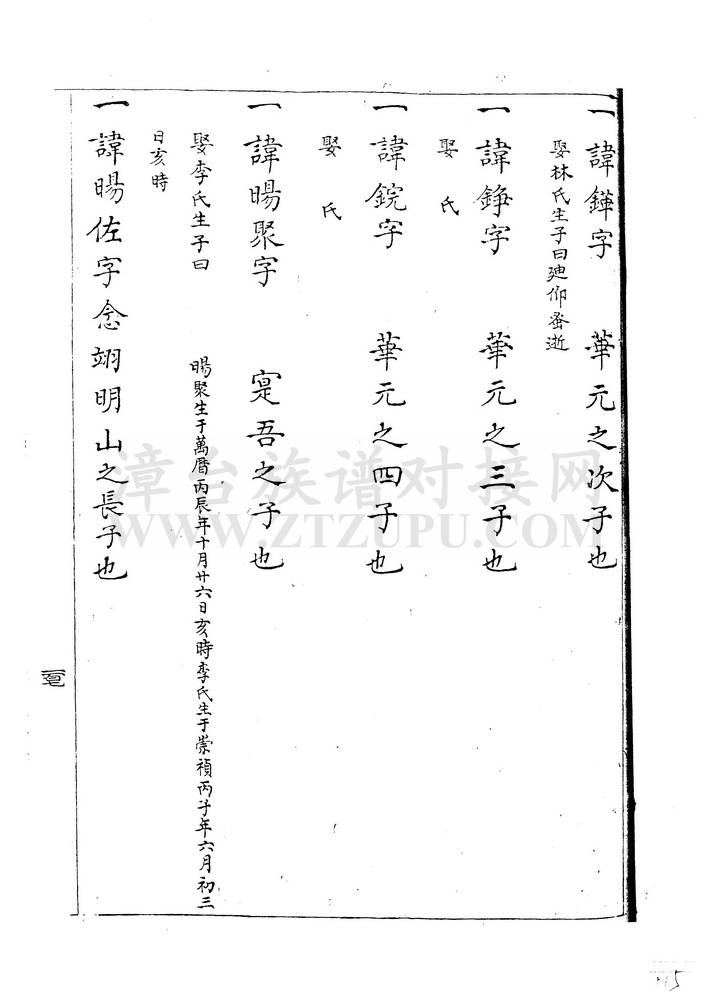 一諱鏵字 華元之次子也
娶林氏生子曰廸仰蚤逝
一諱錚字 華元之三子也
娶 氏
一諱鋎字 華元之四子也
娶 氏
一諱暘聚字 寔吾之子也
娶李氏生子曰 暘聚生于萬曆丙辰年十月廿六日亥時李氏生于崇禎丙子年六月初三
日亥時
一諱暘佐字念翊明山之長子也
漳台族谱对接网
WWW.ZTZUPU.COM
115